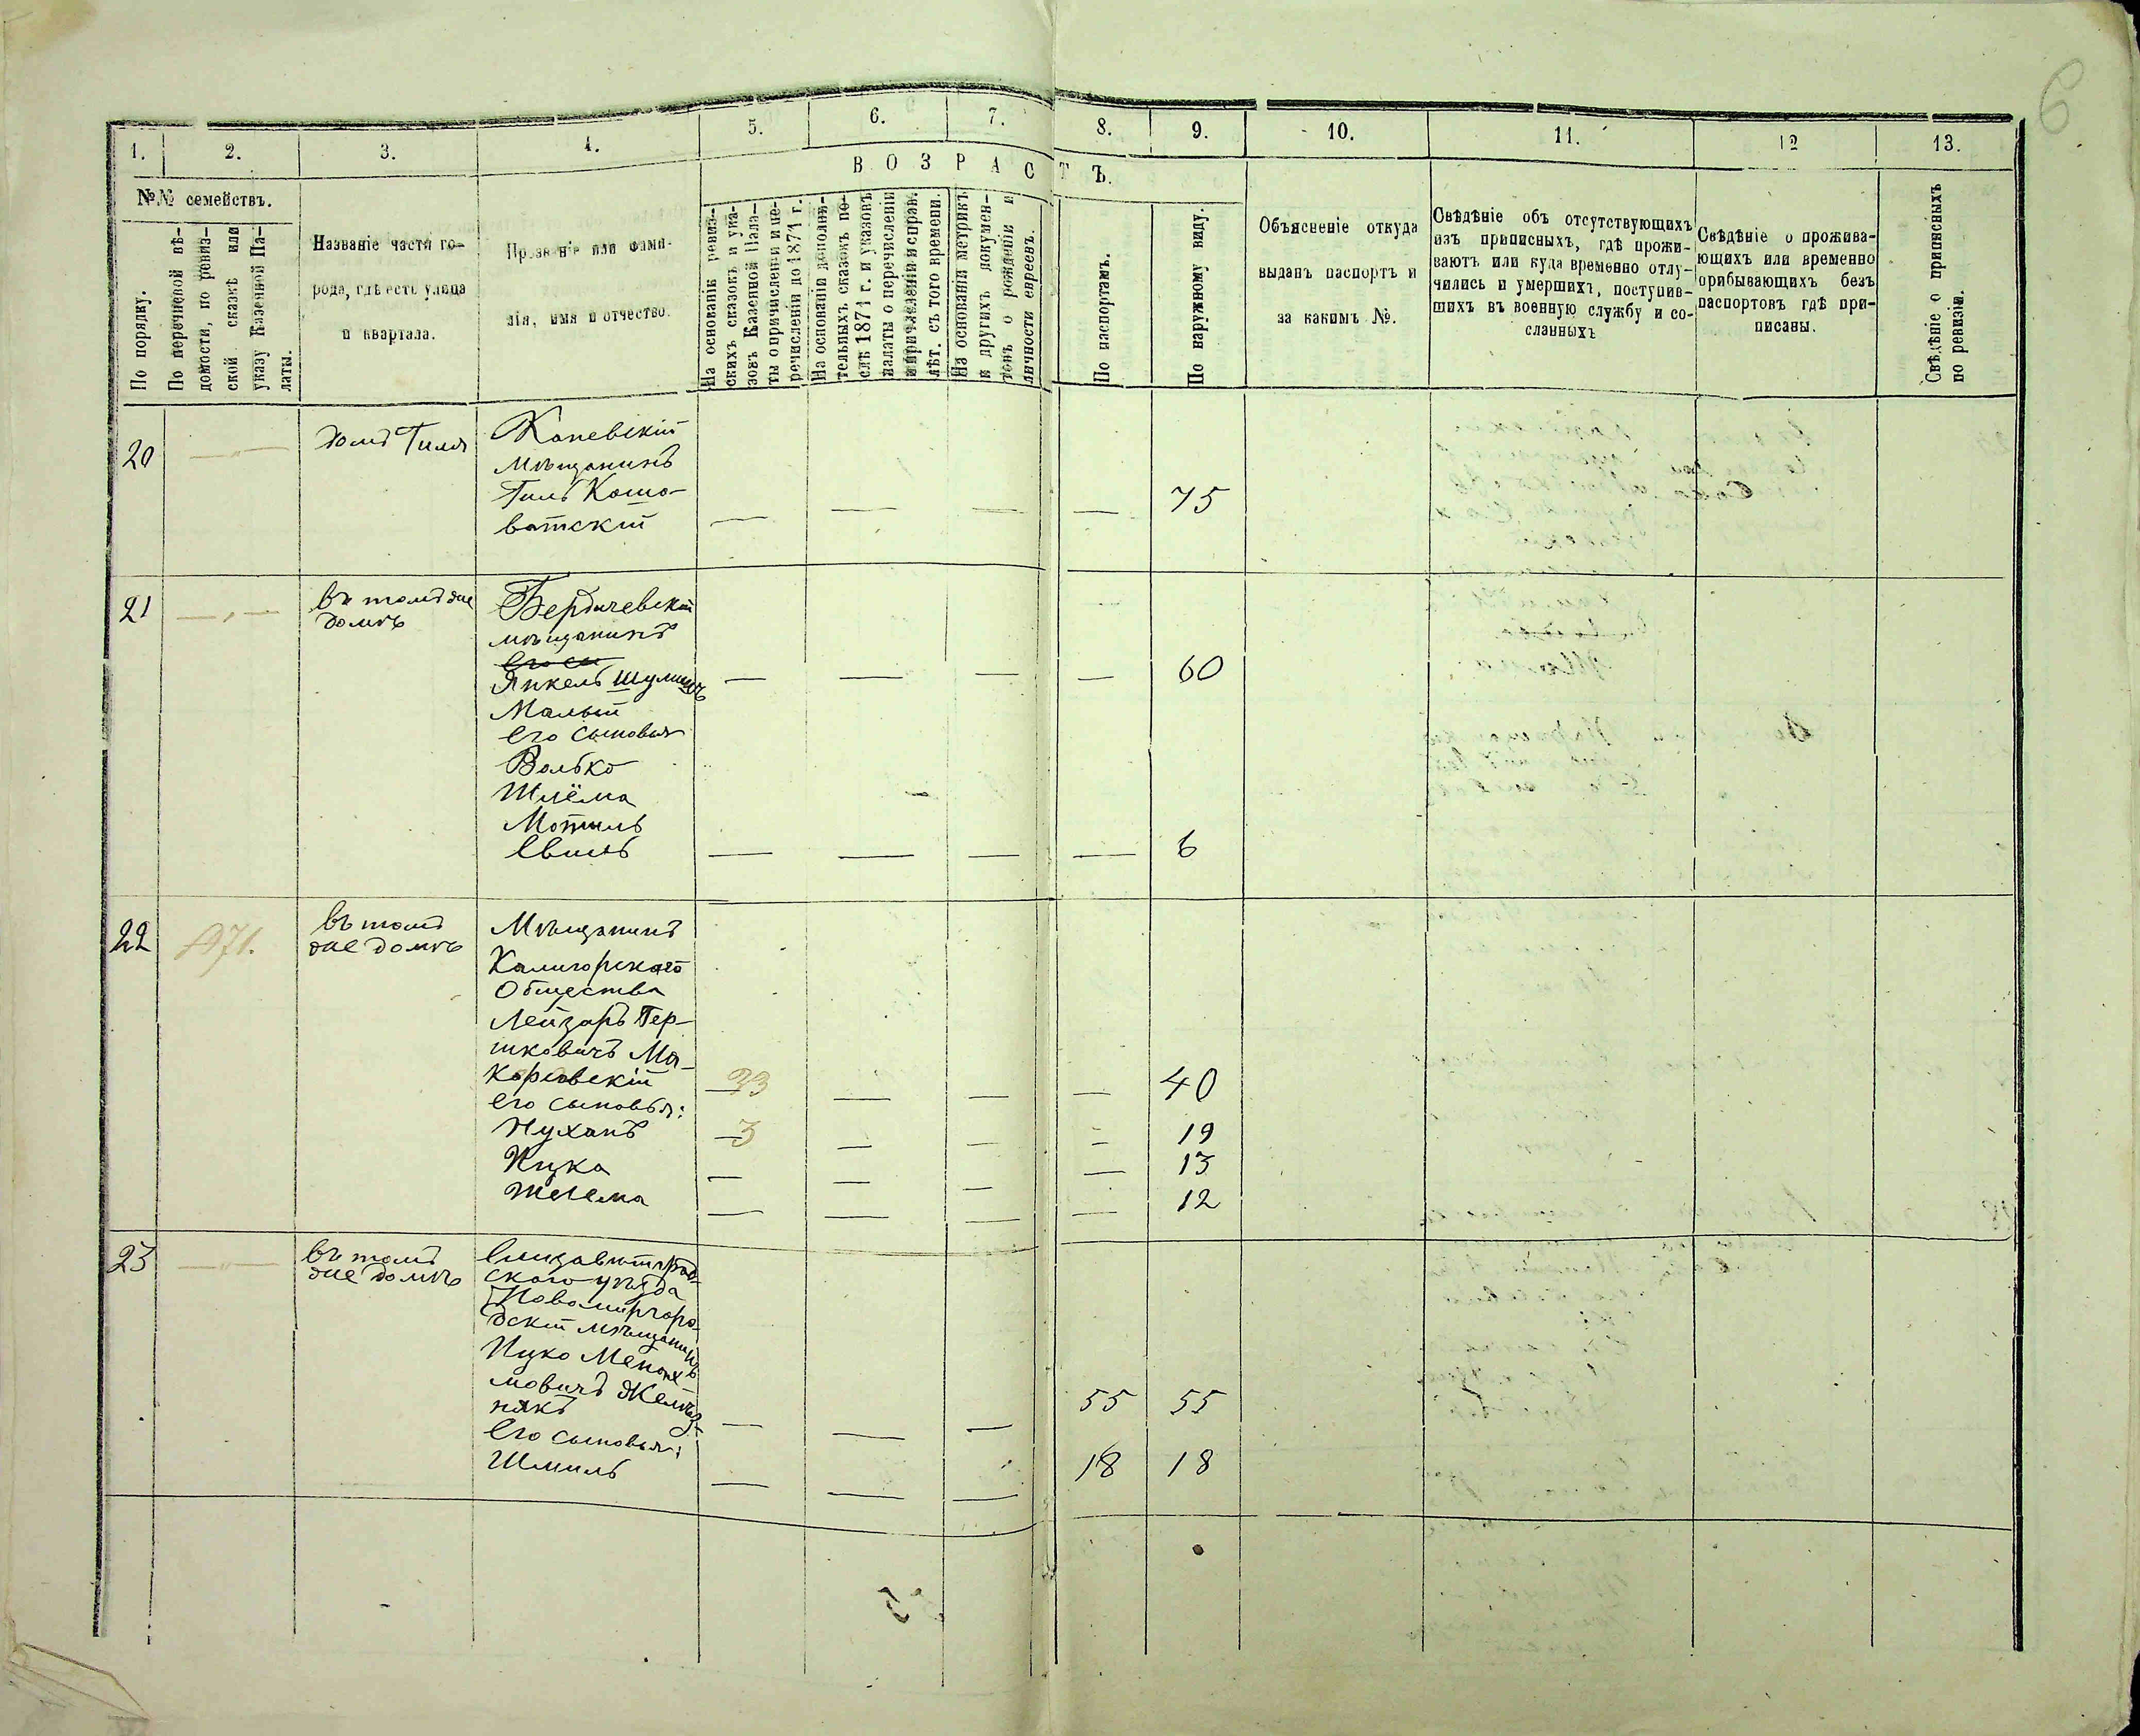 6
1. 2. 3. 4. 5. 6. 7. 8. 9. 10. 11. 12 13.
№№ семействъ.
По порядку.
По перечневой вѣ-
домости, по ревиз-
ской сказкѣ или
указу Казенной Па-
латы.
Названіе части го-
рода, гдѣ есть улица
и квартала.
Прозваніе или фами-
лія, имя и отчество.
ВОЗРАСТЪ.
На основаніи ревиз-
скихъ сказокъ и ука-
зовъ Казенной Пала-
ты о причисленіи и пе-
речисленіи до 1874 г.
На основаніи дополни-
тельныхъ сказокъ по-
слѣ 1874 г. и указовъ
палаты о перечисленіи
и причисленіи и справ.
лѣт. съ того времени.
На основаніи метрикъ
и другихъ докумен-
товъ о рожденіи и
личности евреевъ.
По паспортамъ.
По наружному виду.
Объясненіе откуда
выданъ паспортъ и
за какимъ №.
Свѣдѣніе объ отсутствующихъ
изъ приписныхъ, гдѣ прожи-
ваютъ или куда временно отлу-
чились и умершихъ, поступив-
шихъ въ военную службу и со-
сланныхъ
Свѣдѣніе о прожива-
ющихъ или временно
прибывающихъ безъ
паспортовъ гдѣ при-
писаны.
Свѣдѣніе о приписныхъ
по ревизіи.
20 — " — домъ Гиля Каневскій
мѣщанинъ
Гиль Кошо-
ватскій — — — — 75
21 — " — въ томъ же Бердичевскій
домѣ мѣщанинъ
Янкель Шулимовъ — — — — 60
Малый
его сыновья
Волько
Шлёма
Мотель
— — — — 6
22 въ томъ Мѣщанинъ
же домѣ Калигорскаго
Общества
Лейзаръ Гер-
шковичъ Ма-
каровскій 33 — — — 40
его сыновья:
Нуханъ 3 — — — 19
Ицка — — — — 13
Шлема — — — — 12
23 — " — въ томъ Елизаветград-
же домѣ скаго уѣзда
Новомиргоро-
дскій мѣщанинъ
Ицко Менахи-
мовичъ Желѣз-
някъ — — — 55 55
его сыновья:
Шмиль — — — 18 18